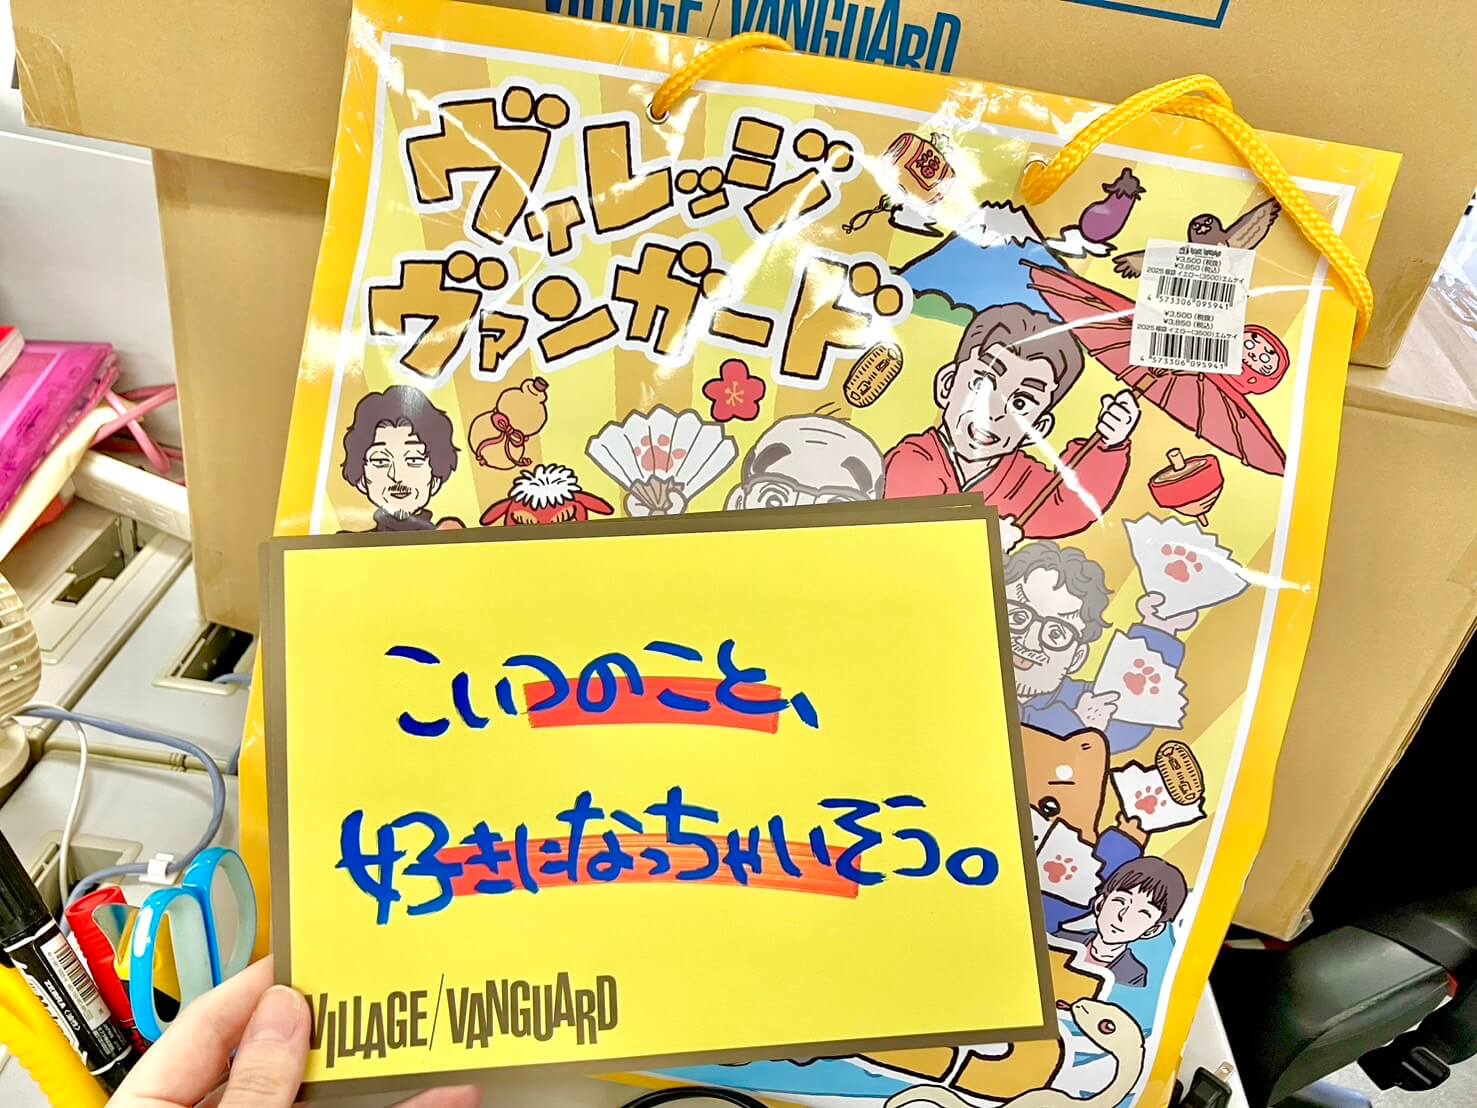 VILLAGE/VANGUARD
ヴィレッジ
ヴァンガード
¥3,500(税抜)
¥3,850(税込)
2025 福袋 イエロー(3500)エムケイ
4 573306 095941
¥3,500(税抜)
¥3,850(税込)
2025 福袋 イエロー(3500)エムケイ
4 573306 095941
こいつのこと、
好きになっちゃいそう。
VILLAGE/VANGUARD